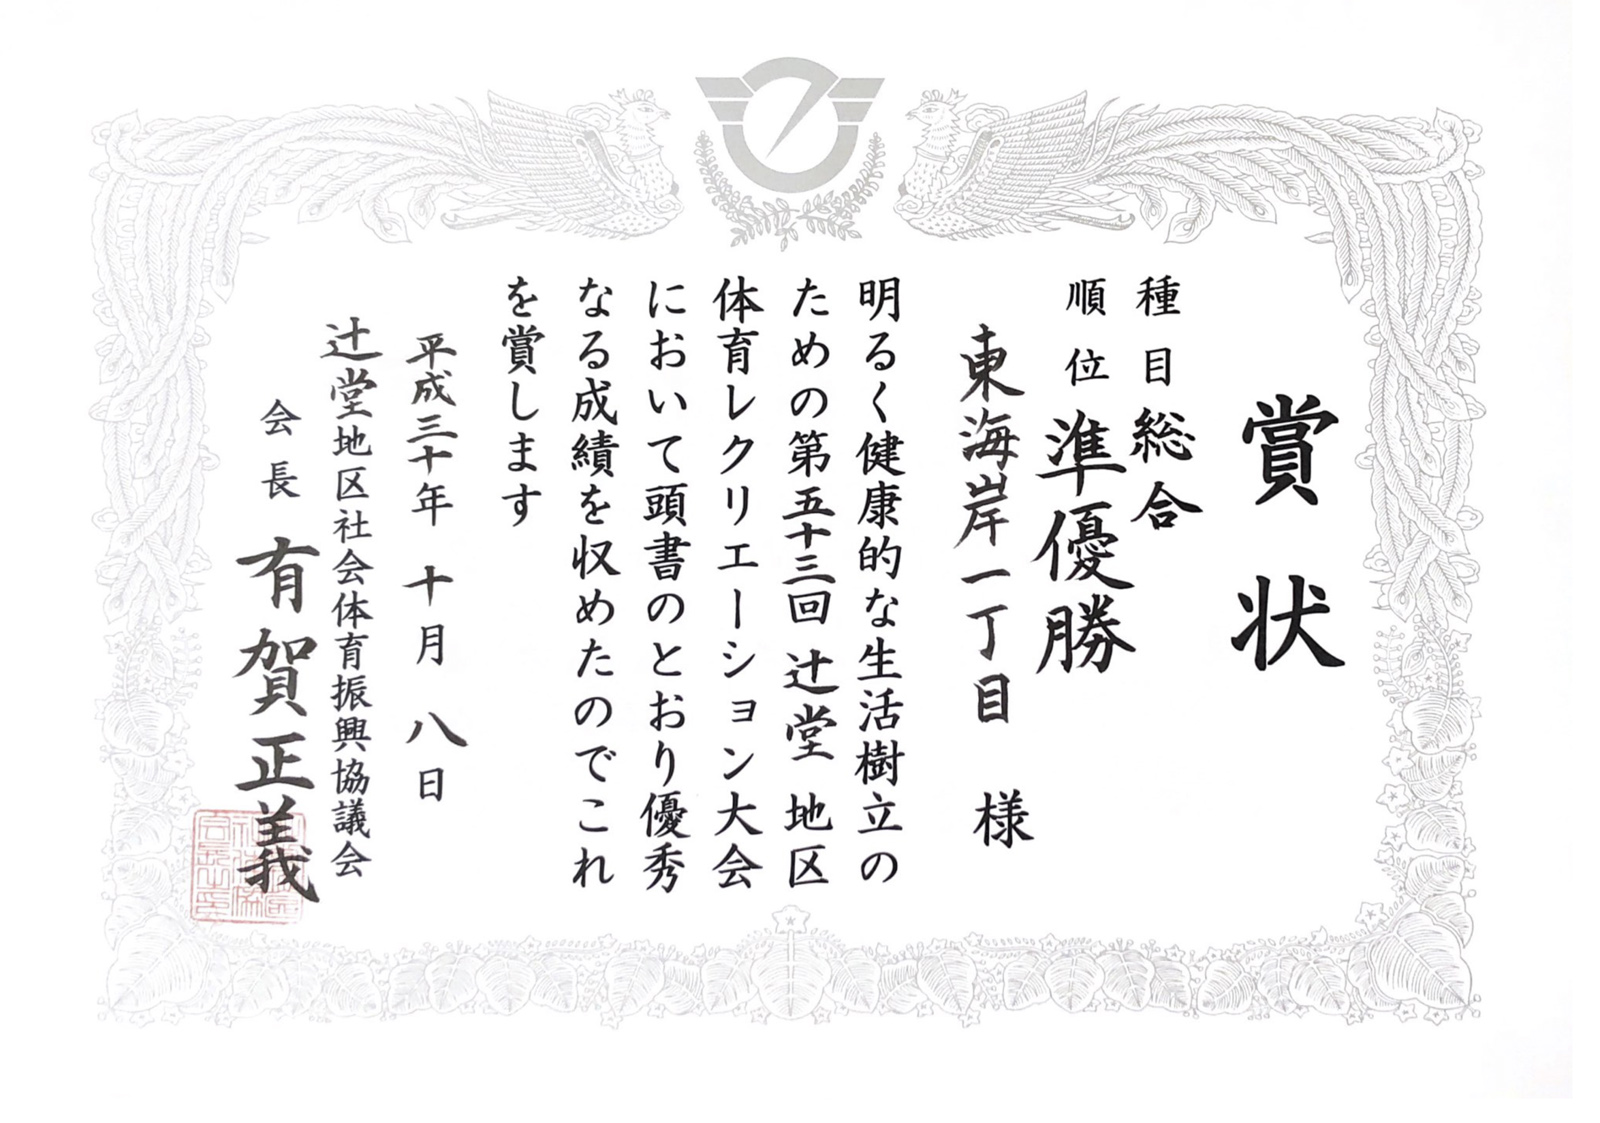 賞状
種目 総合
順位 準優勝
東海岸一丁目 様
明るく健康的な生活樹立の
ための第五十三回 辻堂 地区
体育レクリエーション大会
において頭書のとおり優秀
なる成績を収めたのでこれ
を賞します
平成三十年 十月 八日
辻堂地区社会体育振興協議会
会長 有賀正義